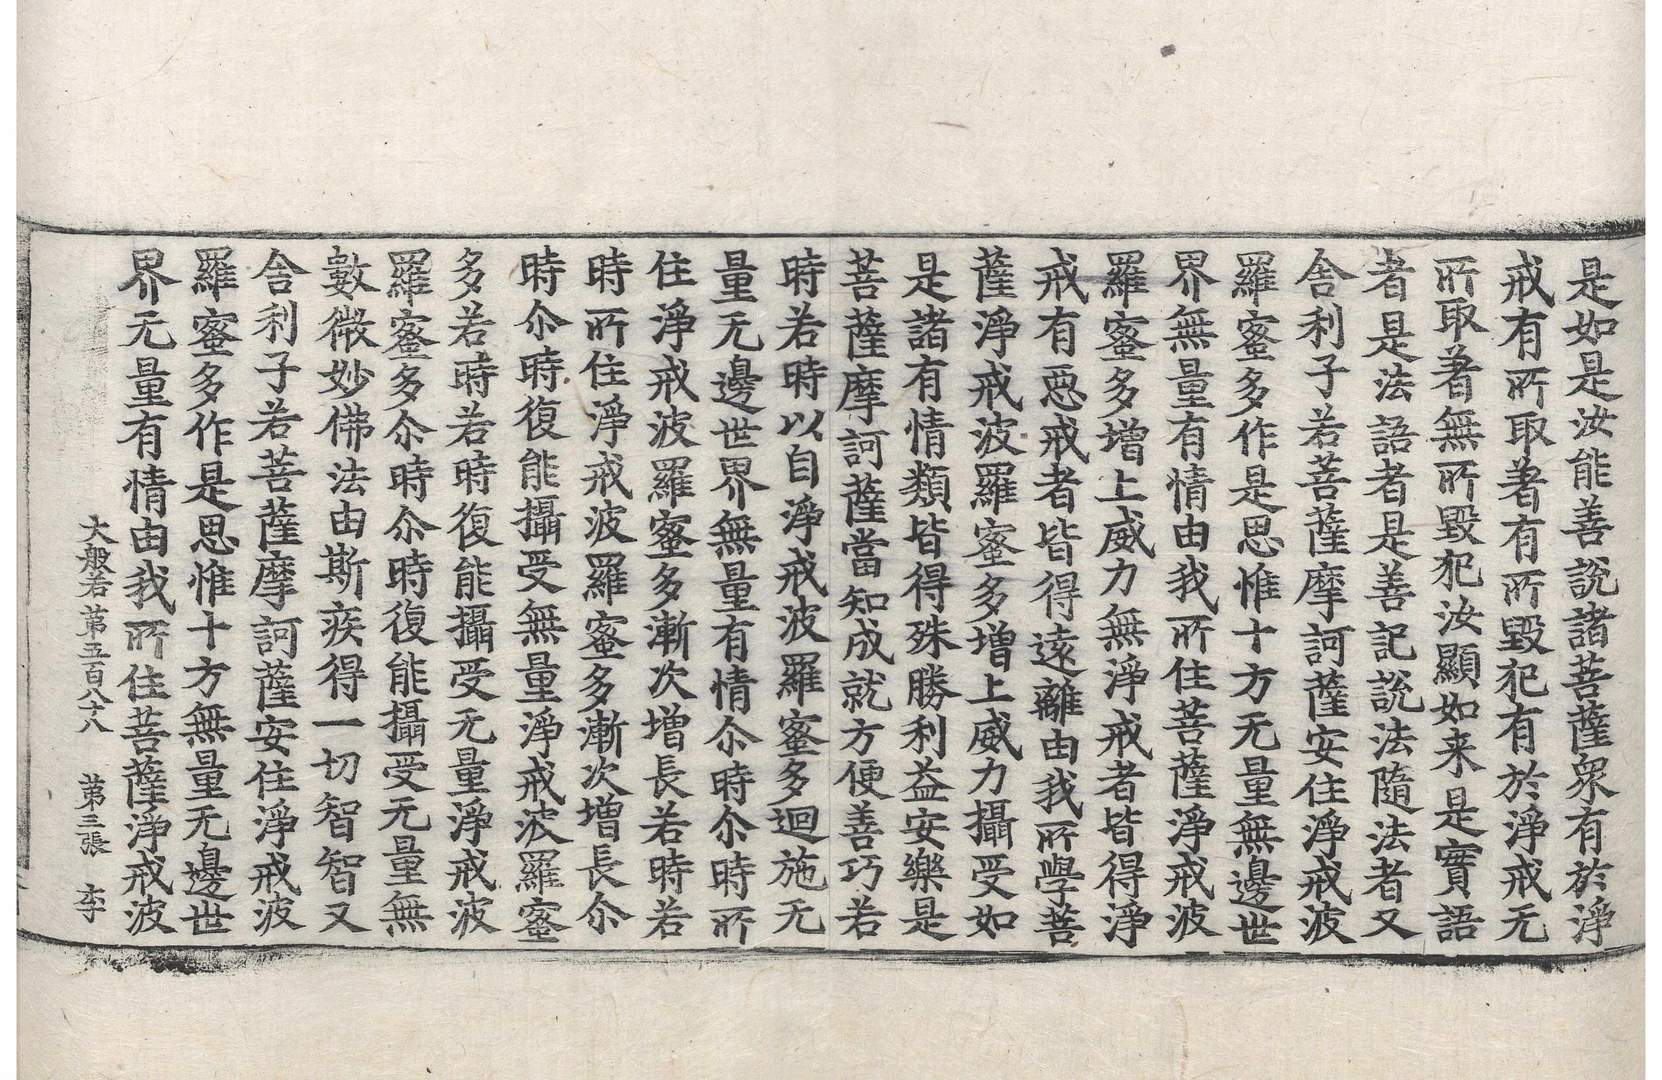 是如是汝能善說諸菩薩衆有於淨
戒有所取著有所毀犯有於淨戒无
所取著無所毀犯汝顯如来是實語
者是法語者是善記說法隨法者又
舎利子若菩薩摩訶薩安住淨戒波
羅蜜多作是思惟十方无量無邊世
界無量有情由我所住菩薩淨戒波
羅蜜多增上威力無淨戒者皆得淨
戒有惡戒者皆得遠離由我所學菩
薩淨戒波羅蜜多增上威力攝受如
是諸有情類皆得殊勝利益安樂是
菩薩摩訶薩當知成就方便善巧若
時若時以自淨戒波羅蜜多迴施无
量无邊世界無量有情尒時尒時所
住淨戒波羅蜜多漸次增長若時若
時所住淨戒波羅蜜多漸次增長尒
時尒時復能攝受無量淨戒波羅蜜
多若時若時復能攝受无量淨戒波
羅蜜多尒時尒時復能攝受无量無
數微妙佛法由斯疾得一切智智又
舎利子若菩薩摩訶薩安住淨戒波
羅蜜多作是思惟十方無量无邊世
界无量有情由我所住菩薩淨戒波
大般若第五百八十八 第三張 李